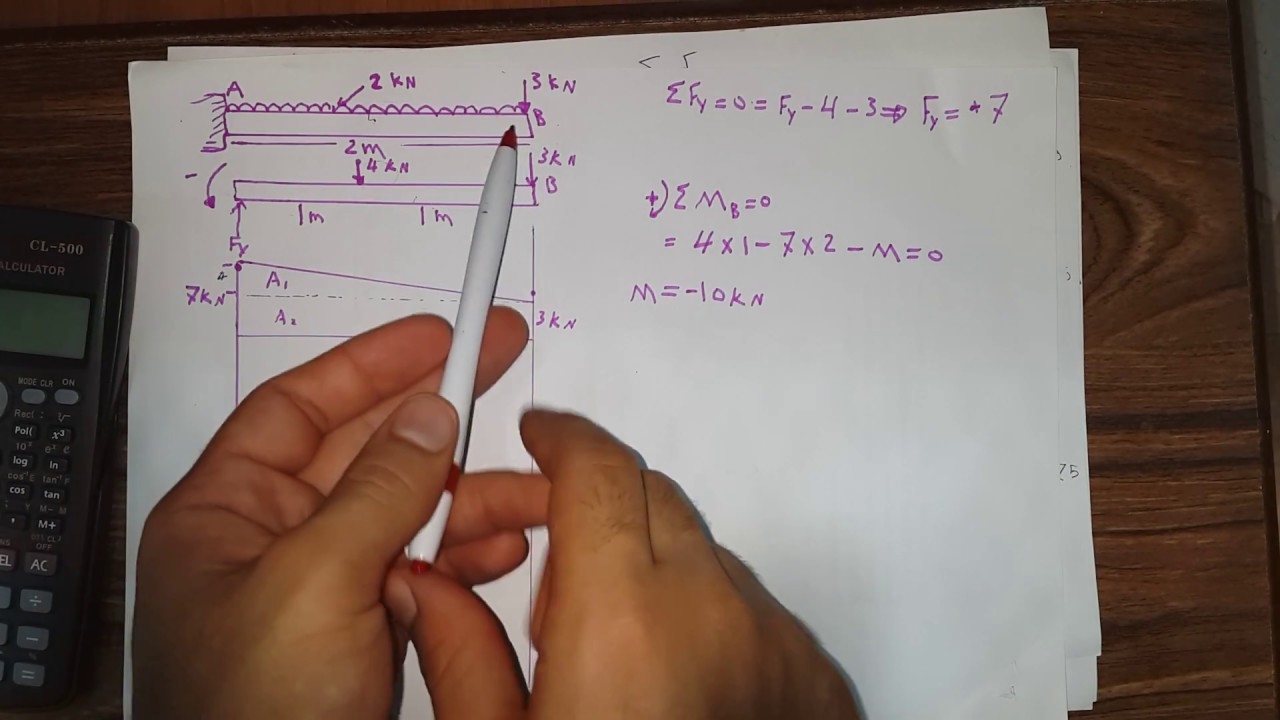 A
2 kN
3 kN
B
2m
4 kN
3 kN
-
B
1 m
1 m
Fy
A
A₁
7 kN
A₂
3 kN
ΣFy = 0 = Fy - 4 - 3 ⇒ Fy = + 7
+) Σ M_B = 0
= 4 x 1 - 7 x 2 - M = 0
M = -10 kN
75
CL-500
ALCULATOR
MODE CLR
ON
Rec( :
Pol(
x³
10ˣ
eˣ
e
log
ln
cos⁻¹ E
tan⁻¹ F
cos
tan
M-
M
,
M+
OFF
EL
AC
÷
−
=